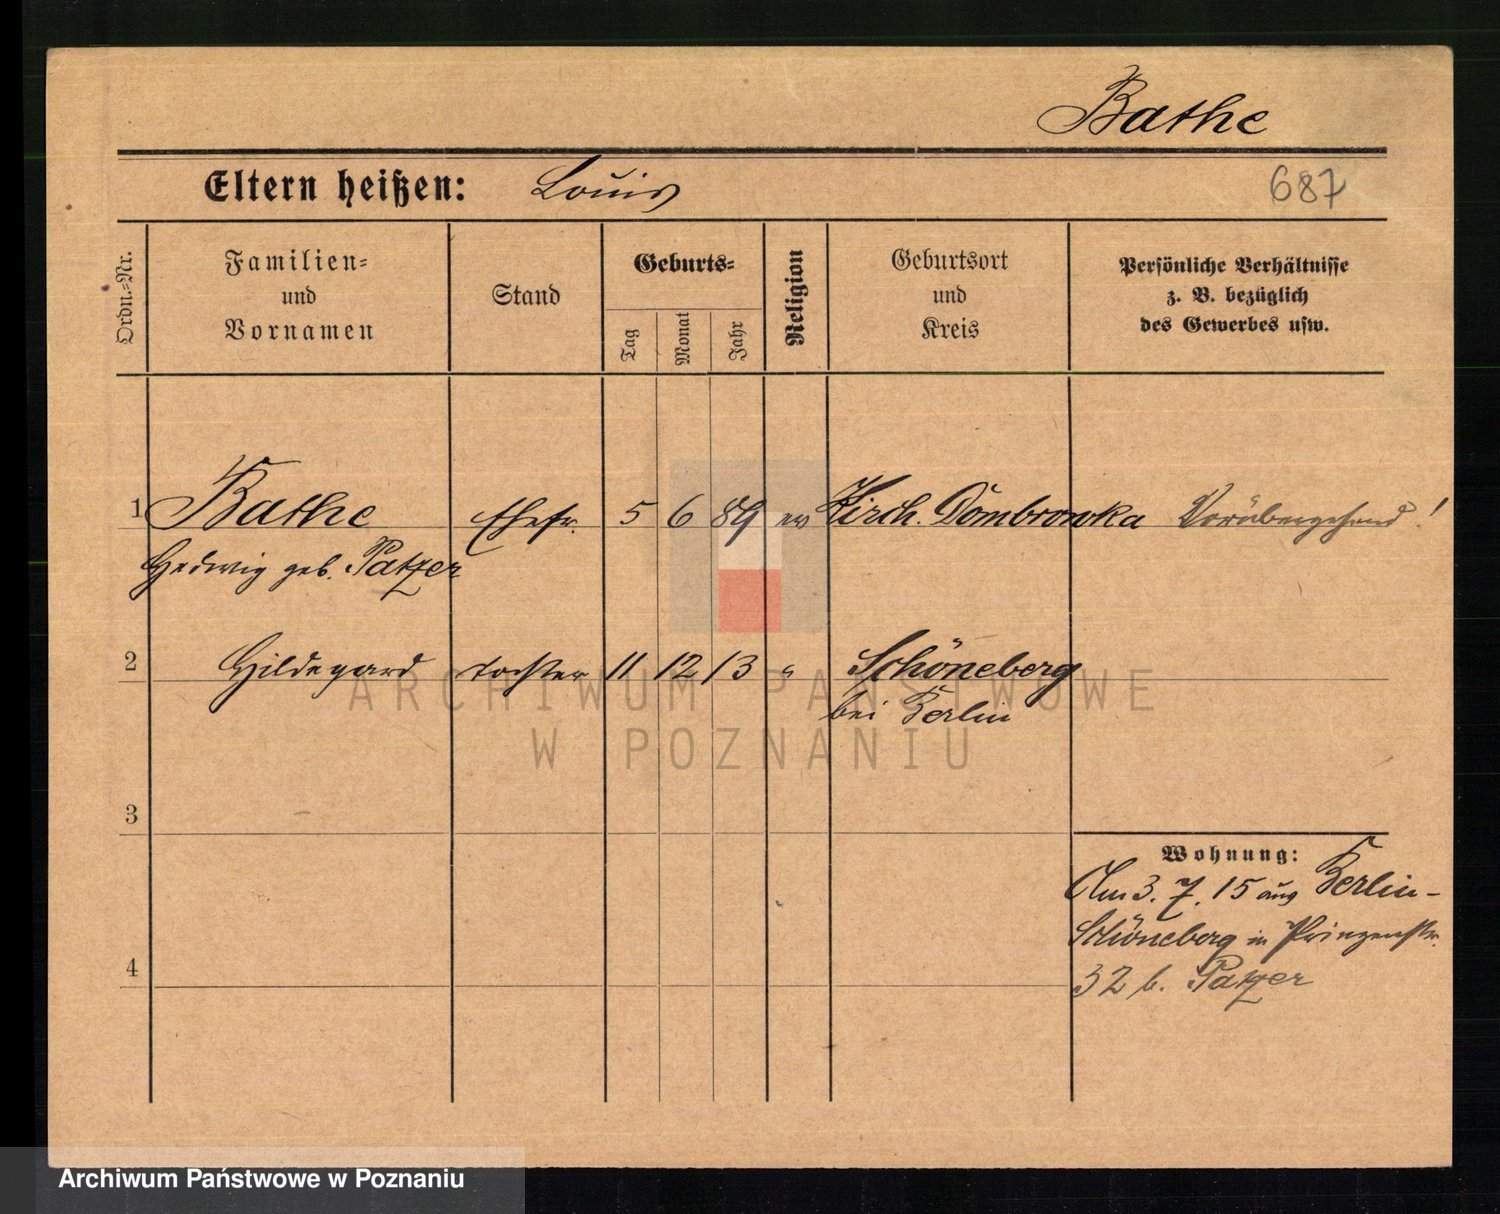 Bathe
Eltern heißen: Louis
687
Ordn.-Nr.
Familien-
und
Vornamen
Stand
Geburts-
Tag
Monat
Jahr
Religion
Geburtsort
und
Kreis
Persönliche Verhältnisse
z. B. bezüglich
des Gewerbes usw.
1 Bathe Ehefr. 5 6 89 ev Kirch. Dombrowka Vorübergehend!
Hedwig geb. Patzer
2 Hildegard Tochter 11 12 13 " Schöneberg
bei Berlin
3
Wohnung:
Am 3. 7. 15 aus Berlin-
Schöneberg in Prinzenstr.
4
32 b. Patzer
ARCHIWUM PAŃSTWOWE
W POZNANIU
Archiwum Państwowe w Poznaniu